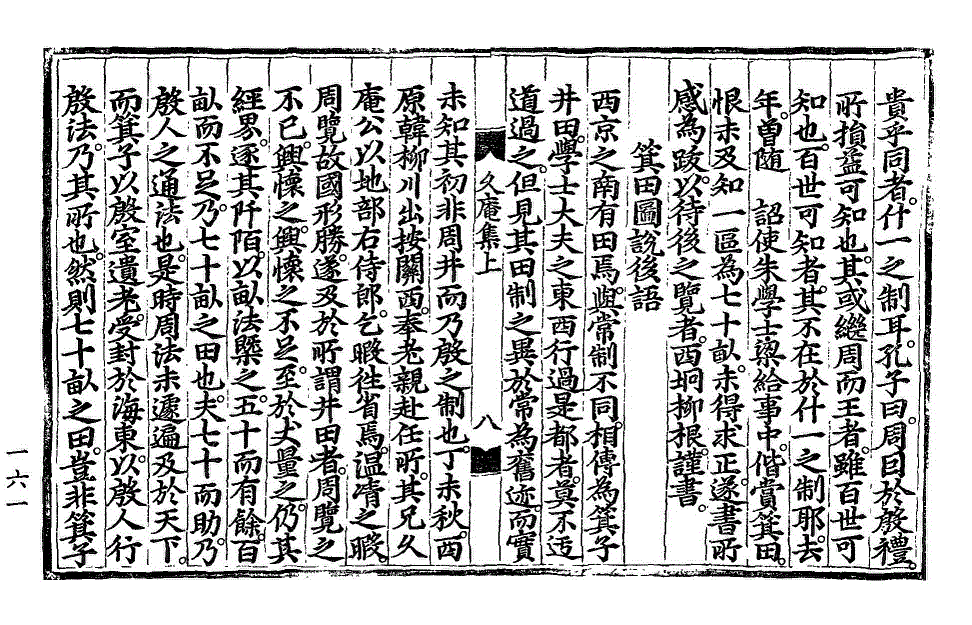 貴乎同者。什一之制耳。孔子曰。周因於殷禮。
所損益可知也。其或繼周而王者。雖百世可
知也。百世可知者。其不在於什一之制耶。去
年。曾隨　詔使朱學士梁給事中。偕賞箕田。
恨未及知一區為七十畝。未得求正。遂書所
感為跋。以待後之覽者。西坰柳根。謹書。
箕田圖說後語
西京之南有田焉。與常制不同。相傳為箕子
井田。學士大夫之東西行過是都者。莫不迂
道過之。但見其田制之異於常為舊迹。而實
久庵集上
八
未知其初非周井而乃殷之制也。丁未秋。西
原韓柳川出按關西。奉老親赴任所。其兄久
庵公以地部右侍郎。乞暇往省焉。溫凊之暇。
周覽故國形勝。遂及於所謂井田者。周覽之
不已。興懷之。興懷之不足。至於丈量之。仍其
經界。逐其阡陌。以畝法槩之。五十而有餘。百
畝而不足。乃七十畝之田也。夫七十而助。乃
殷人之通法也。是時周法未遽遍及於天下。
而箕子以殷室遺老。受封於海東。以殷人行
殷法。乃其所也。然則七十畝之田。豈非箕子
一六一